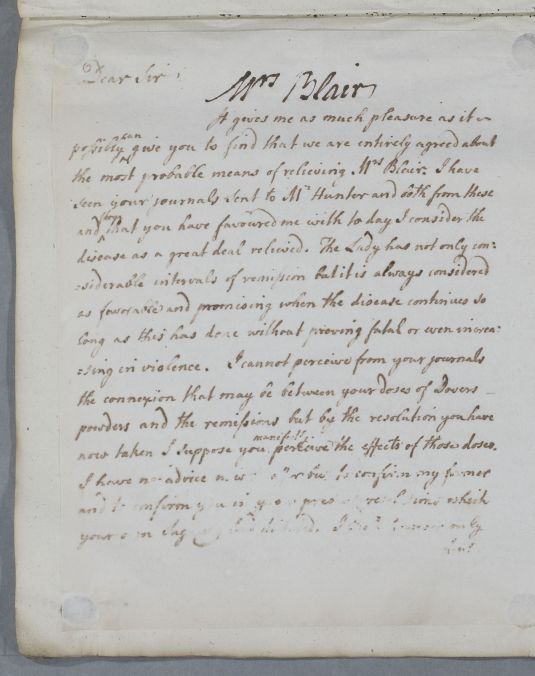 Dear Sir
Mrs Blair
It gives me as much pleasure as it
can
possibly give you to find that we are entirely agreed about
the most probable means of relieving Mrs Blair. I have
seen your journals sent to Mr Hunter and both from these
and from that you have favoured me with to day I consider the
disease as a great deal relieved. The Lady has not only con:
:siderable intervals of remission but it is always considered
as favorable and promising when the disease continues so
long as this has done without proving fatal or even increa:
:sing in violence. I cannot perceive from your journals
the connexion that may be between your doses of Dovers
powders and the remissions but by the resolution you have
manifestly
now taken I suppose you perceive the effects of those doses.
I have no advice to confirm my former
and to confirm you in your present resolutions which
your own I only